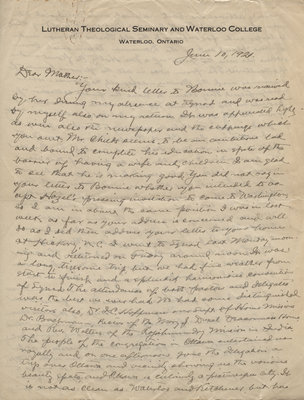 LUTHERAN THEOLOGICAL SEMINARY AND WATERLOO COLLEGE
WATERLOO, ONTARIO
June 10, 1921
Dear Mother:-
Your kind letter to Bonnie was received
by her during my absence at Synod and was read
by myself on my return. It was appreciated highly
As were also the newspaper and the clippings which
you sent. Mr. is an ambitious lad
and bound to complete his education in spite of the
barrier of having a wife and children. I am glad
to see that he is making good. You did not say in
your letter to Bonnie whether you intended to ac-
cept Hazel's pressing invitation to come to Washington
so I am in about the same position I was last
week as far as your address is concerned and will
do as I did then address your letter to your home
at Hickory, N.C. I went to Synod last Monday morn-
ing and returned on Friday around noon. It was
a long tiresome trip but we had fine weather from
start to finish and a splendid harmonious convention
of Synod. The attendance of both pastors and delegates
were the best we ever had. We had some distinguished
visitors also, Dr. Hoffman our Supt of Home Missions
Dr. of the Board of Missions
and Rev. of the Mission in India
The people of the congregation in Ottawa entertained us
royally and on one afternoon gave the delegates a
trip over Ottawa and vicinity showing us the various
beauty spots, and Ottawa is certainly a picturesque city. It
is not as clean as Waterloo and Kitchener but has